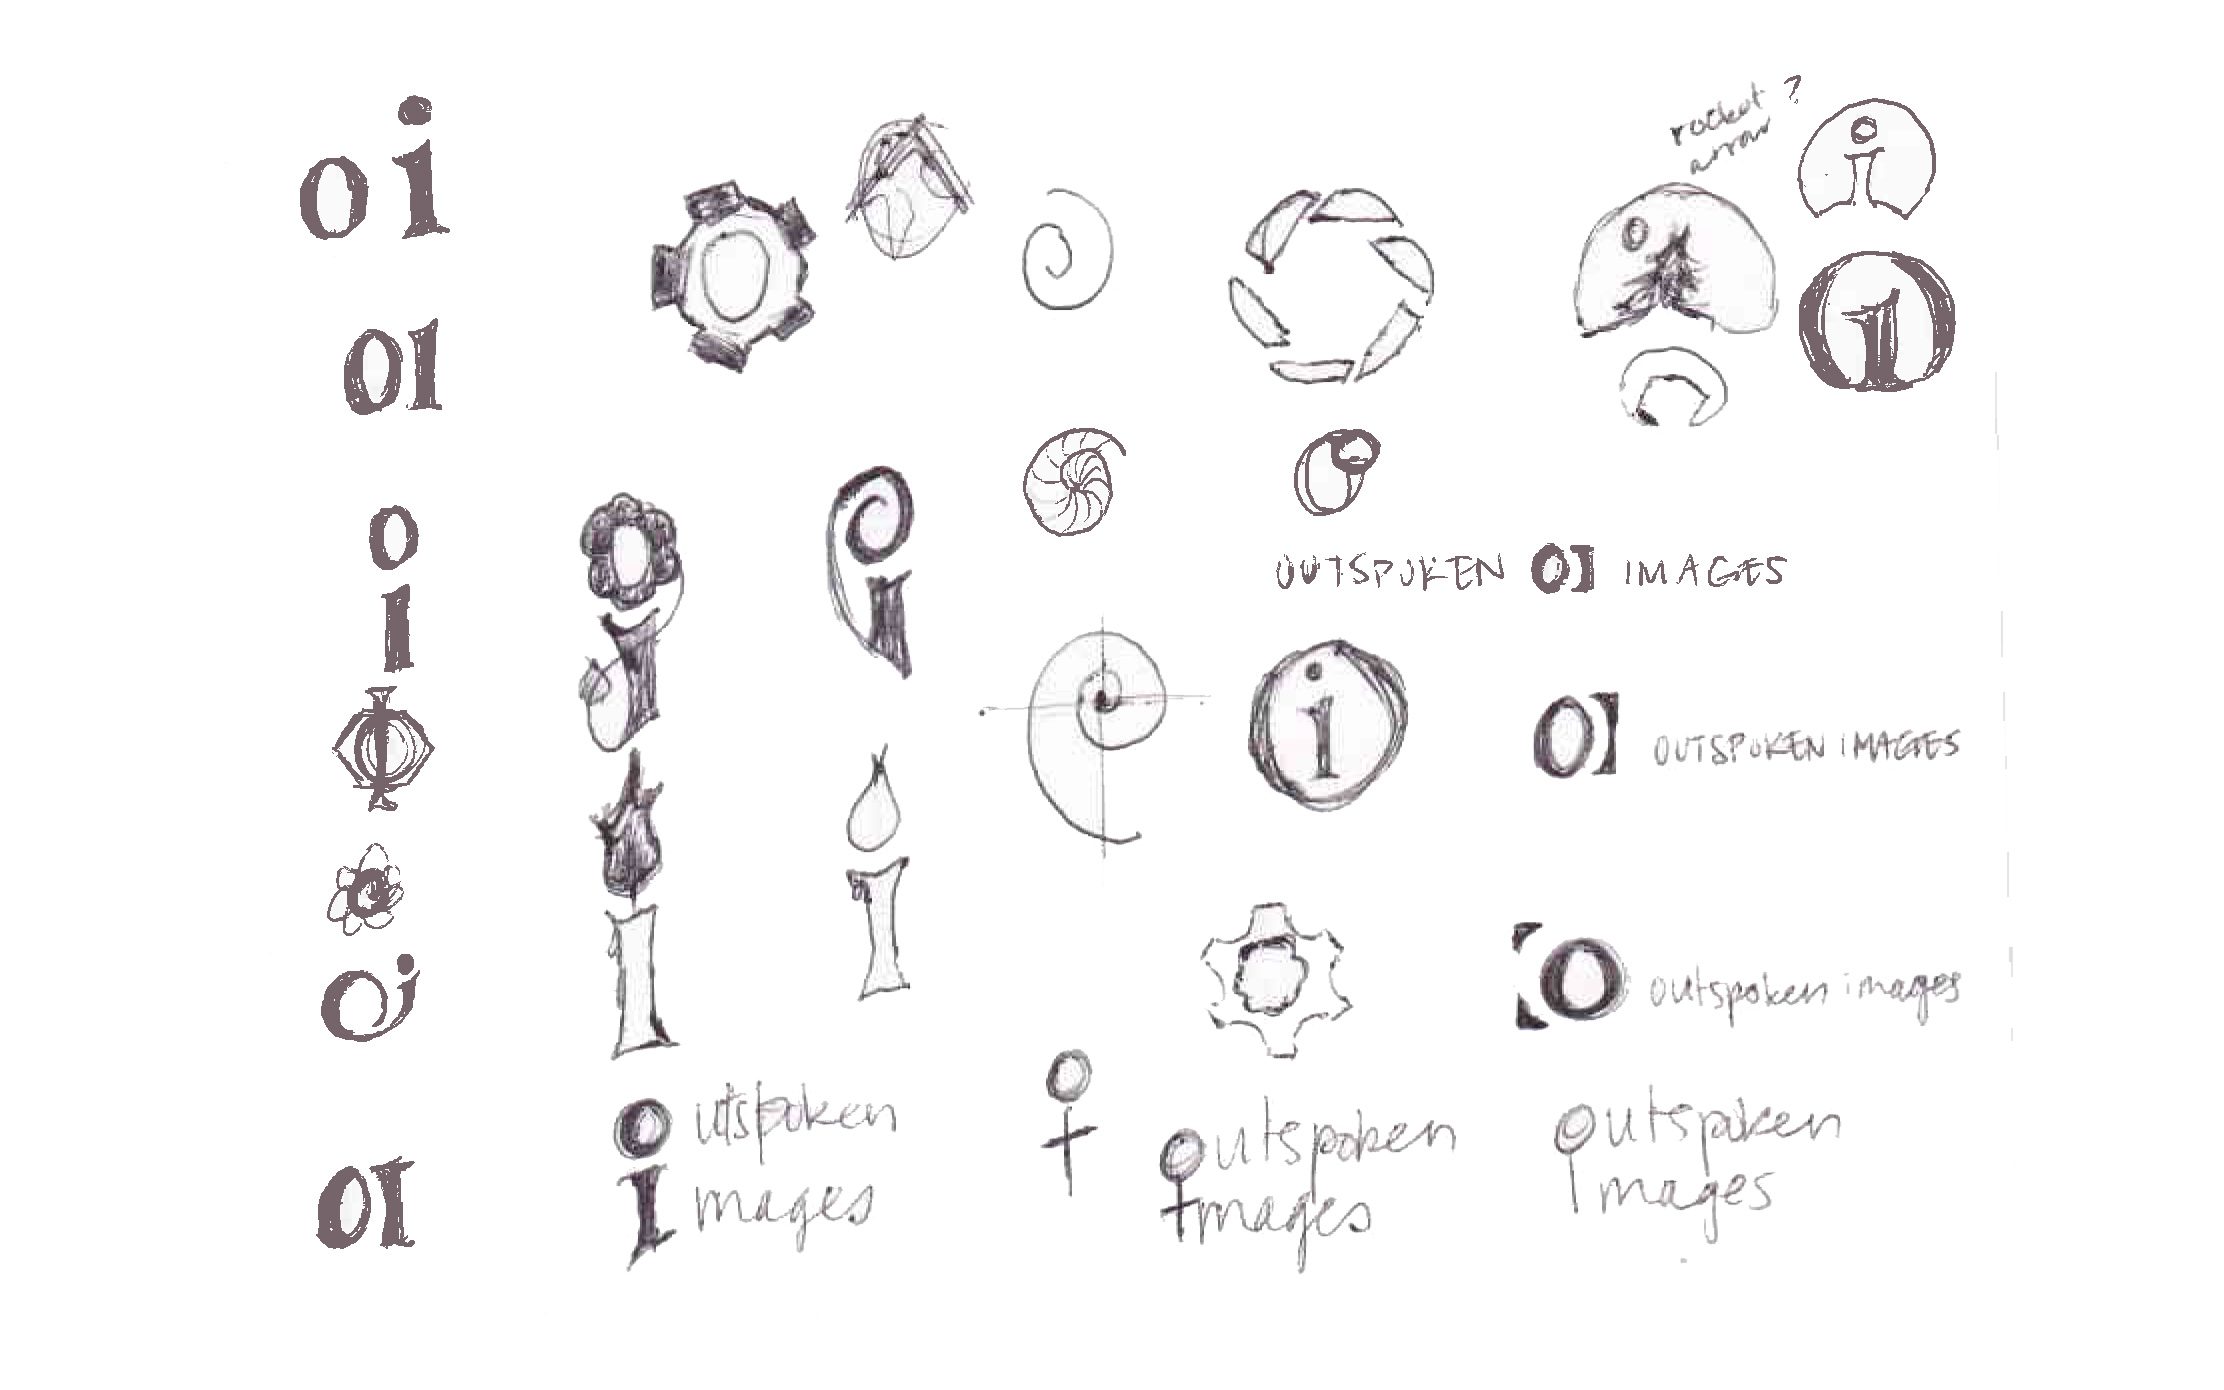 oi
rocket ?
arrow
i
i
1
OI
O
I
OUTSPOKEN OI IMAGES
i
OI OUTSPOKEN IMAGES
oi
O outspoken images
OI
Outspoken
Images
Outspoken
Images
Outspoken
Images